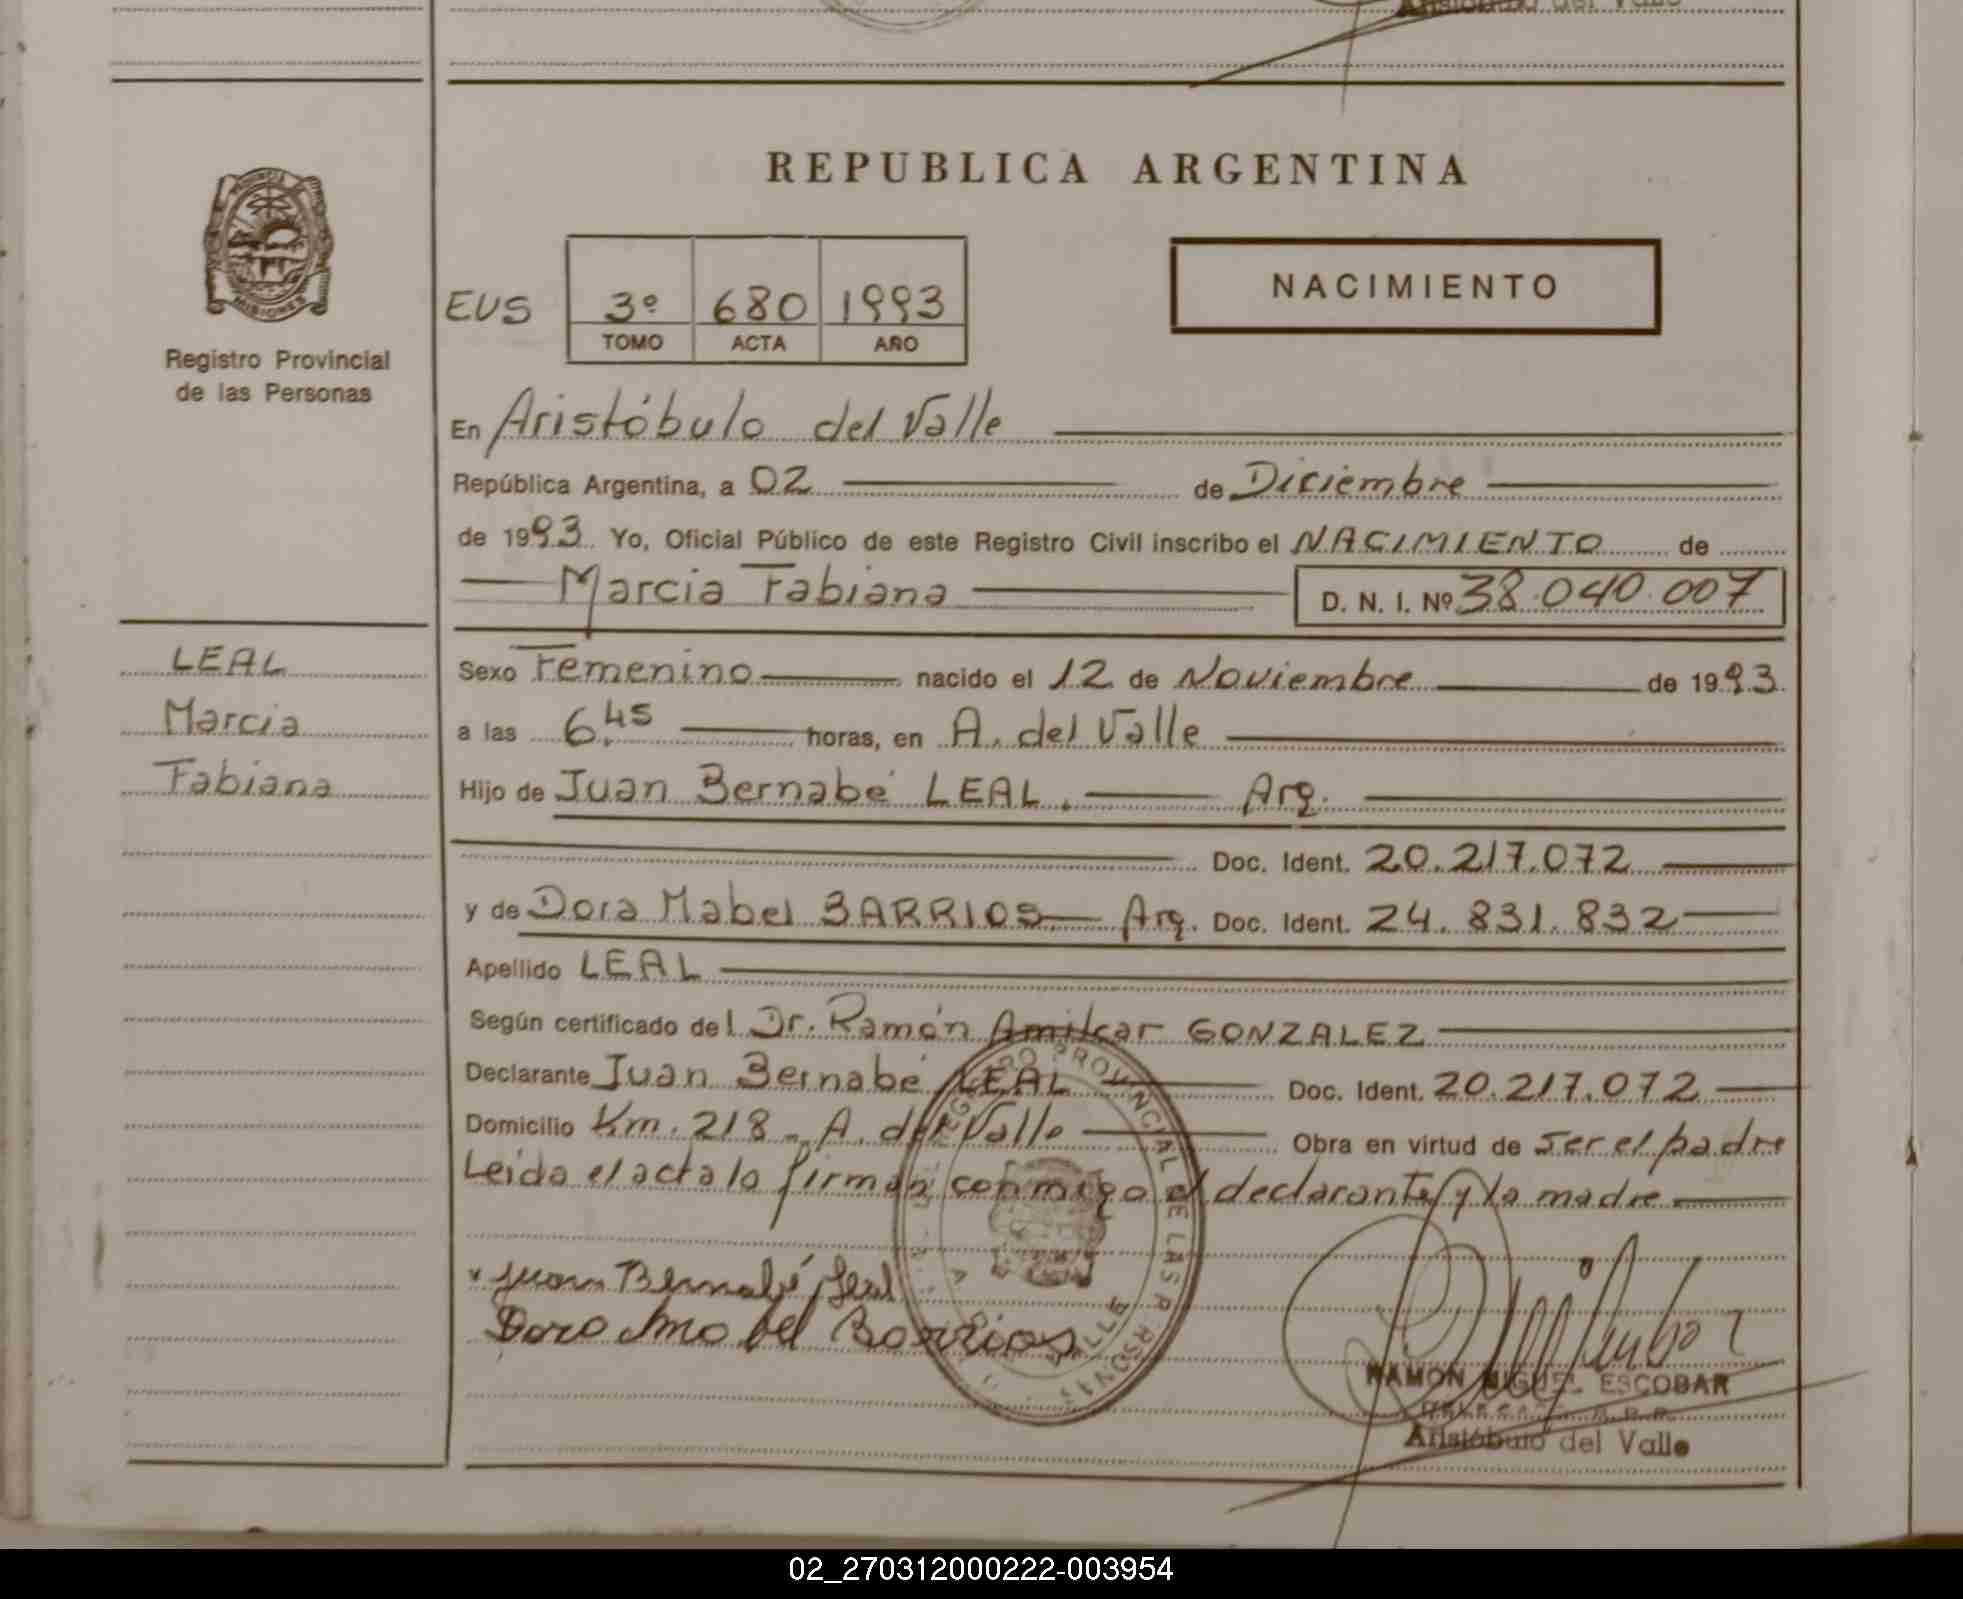 Aristóbulo del Valle
REPUBLICA ARGENTINA
PROVINCIA
MISIONES
Registro Provincial
de las Personas
EUS
3º 680 1993
TOMO ACTA AÑO
NACIMIENTO
En Aristóbulo del Valle
República Argentina, a 02 de Diciembre
de 1993 Yo, Oficial Público de este Registro Civil inscribo el NACIMIENTO de
Marcia Fabiana D. N. I. Nº 38.040.007
LEAL
Marcia
Fabiana
Sexo Femenino nacido el 12 de Noviembre de 1993
a las 6.45 horas, en A. del Valle
Hijo de Juan Bernabé LEAL. Arg.
Doc. Ident. 20.217.072
y de Dora Mabel BARRIOS Arg. Doc. Ident. 24.831.832
Apellido LEAL
Según certificado del Dr. Ramón Amilcar GONZALEZ
Declarante Juan Bernabé LEAL Doc. Ident. 20.217.072
Domicilio Km. 218 - A. del Valle Obra en virtud de ser el padre
Leida el acta la firman conmigo el declarante y la madre
Juan Bernabé Leal
Dora Mabel Barrios
REGISTRO PROVINCIAL DE LAS PERSONAS
RAMON MIGUEL ESCOBAR
Aristóbulo del Valle
02_270312000222-003954